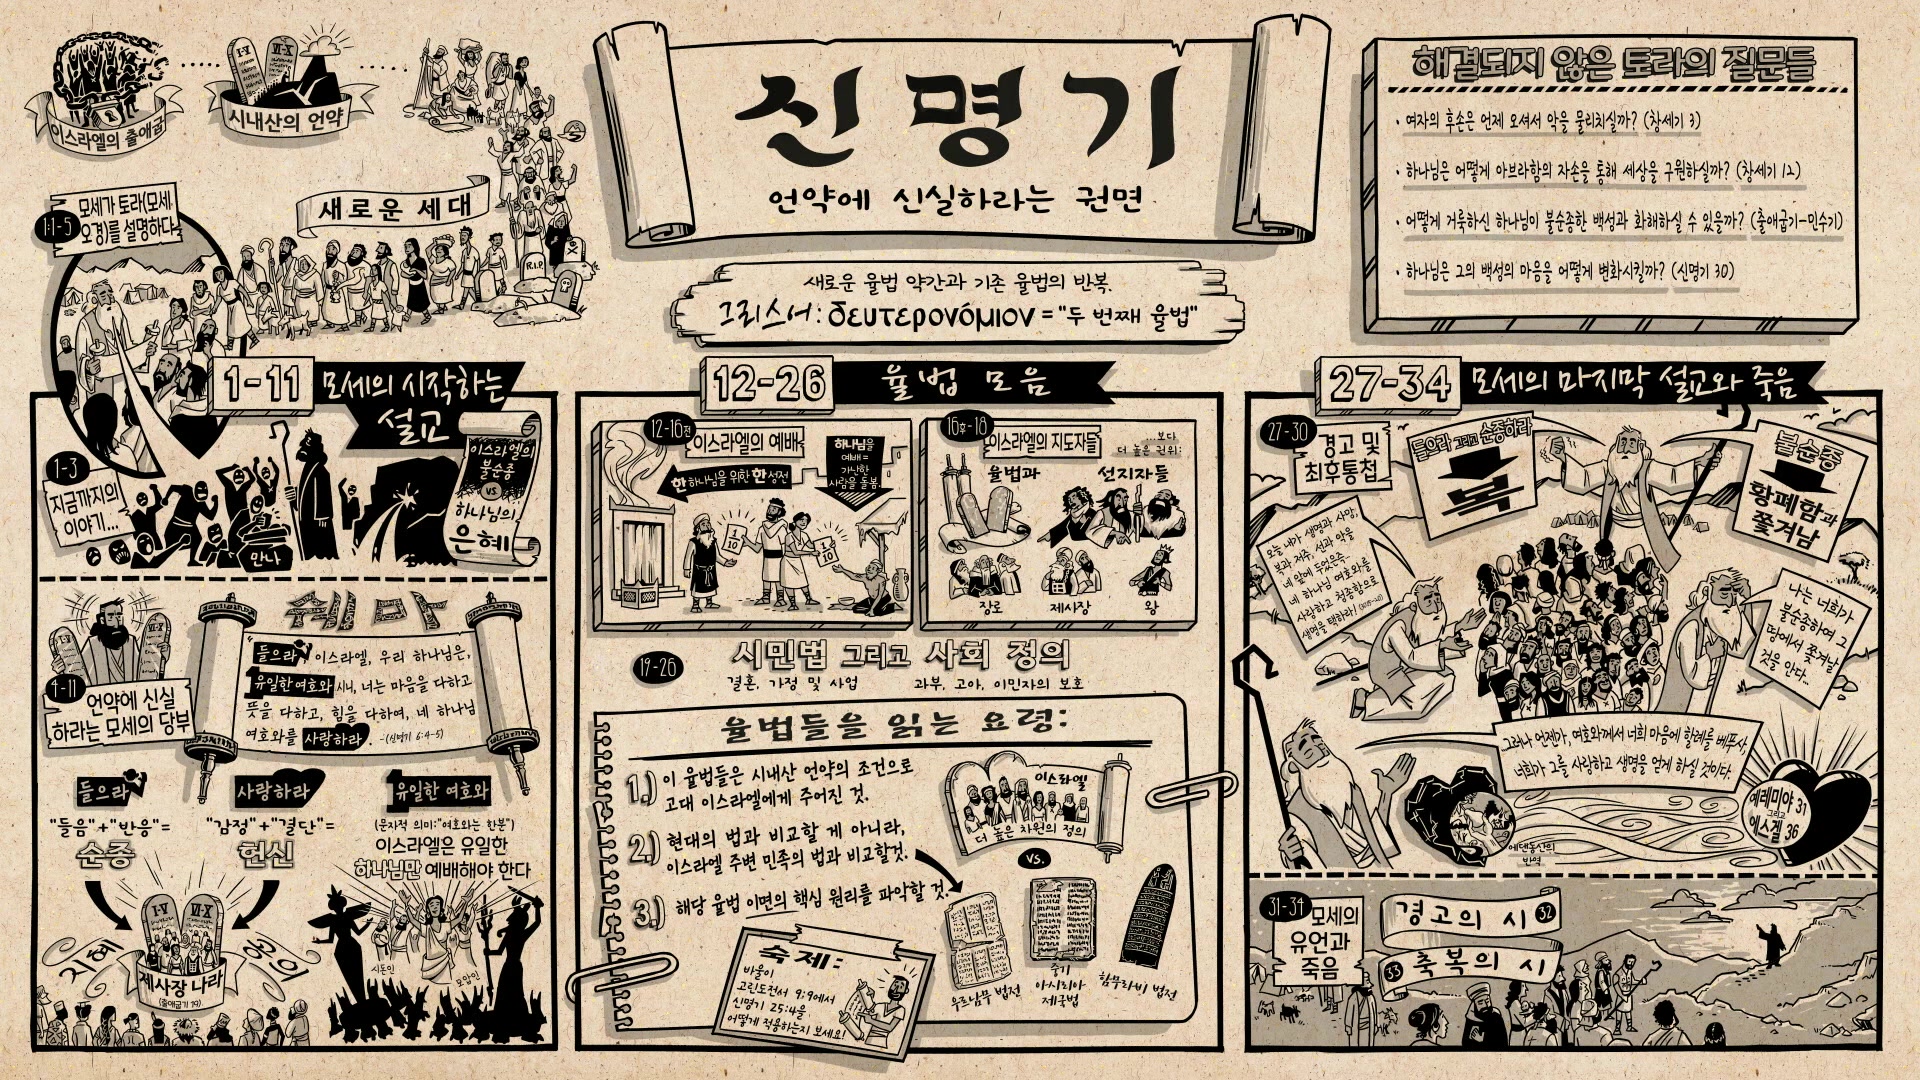 이스라엘의 출애굽
I-V
VI-X
시내산의 언약
새로운 세대
R.I.P.
1:1-5
모세가 토라(모세
오경)를 설명하다
신명기
언약에 신실하라는 권면
새로운 율법 약간과 기존 율법의 반복.
그리스어: δευτερονόμιον = "두 번째 율법"
해결되지 않은 토라의 질문들
· 여자의 후손은 언제 오셔서 악을 물리치실까? (창세기 3)
· 하나님은 어떻게 아브라함의 자손을 통해 세상을 구원하실까? (창세기 12)
· 어떻게 거룩하신 하나님이 불순종한 백성과 화해하실 수 있을까? (출애굽기-민수기)
· 하나님은 그의 백성의 마음을 어떻게 변화시킬까? (신명기 30)
1-11 모세의 시작하는
설교
1-3
지금까지의
이야기...
만나
이스라엘의
불순종
VS
하나님의
은혜
I-V
VI-X
4-11
언약에 신실
하라는 모세의 당부
쉐마
"들으라 이스라엘, 우리 하나님은,
유일한 여호와시니, 너는 마음을 다하고
뜻을 다하고, 힘을 다하여, 네 하나님
여호와를 사랑하라. -(신명기 6:4-5)
들으라
"들음"+"반응"=
순종
사랑하라
"감정"+"결단"=
헌신
유일한 여호와
(문자적 의미:"여호와는 한분")
이스라엘은 유일한
하나님만 예배해야 한다
I-V
VI-X
지혜
공의
제사장 나라
(출애굽기 19)
시돈인
모압인
12-26 율법 모음
12-16전
이스라엘의 예배
한 하나님을 위한 한 성전
하나님을
예배 =
가난한
사람을 돌봄.
1/10
1/10
16후-18
이스라엘의 지도자들
...보다
더 높은 권위:
율법과
선지자들
장로
제시장
왕
19-26
시민법 그리고 사회 정의
결혼, 가정 및 사업
과부, 고아, 이민자의 보호
율법들을 읽는 요령:
1.) 이 율법들은 시내산 언약의 조건으로
고대 이스라엘에게 주어진 것.
2.) 현대의 법과 비교할 게 아니라,
이스라엘 주변 민족의 법과 비교할것.
3.) 해당 율법 이면의 핵심 원리를 파악할 것.
이스라엘
더 높은 차원의 정의
VS.
우르남무 법전
중기
아시리아
제국법
함무라비 법전
숙제:
바울이
고린도전서 9:9에서
신명기 25:4을
어떻게 적용하는지 보세요!
27-34 모세의 마지막 설교와 죽음
27-30
경고 및
최후통첩
들으라 그리고 순종하라
복
불순종
황폐함과
쫓겨남
오늘 내가 생명과 사망,
복과 저주, 선과 악을
네 앞에 두었은즉...
네 하나님 여호와를
사랑하고 청종함으로
생명을 택하라!
나는 너희가
불순종하여 그
땅에서 쫓겨날
것을 안다...
그러나 언젠가, 여호와께서 너희 마음에 할례를 베푸사
너희가 그를 사랑하고 생명을 얻게 하실 것이다.
에덴동산의
반역
예레미야 31
그리고
에스겔 36
31-34
모세의
유언과
죽음
경고의 시 32
33 축복의 시